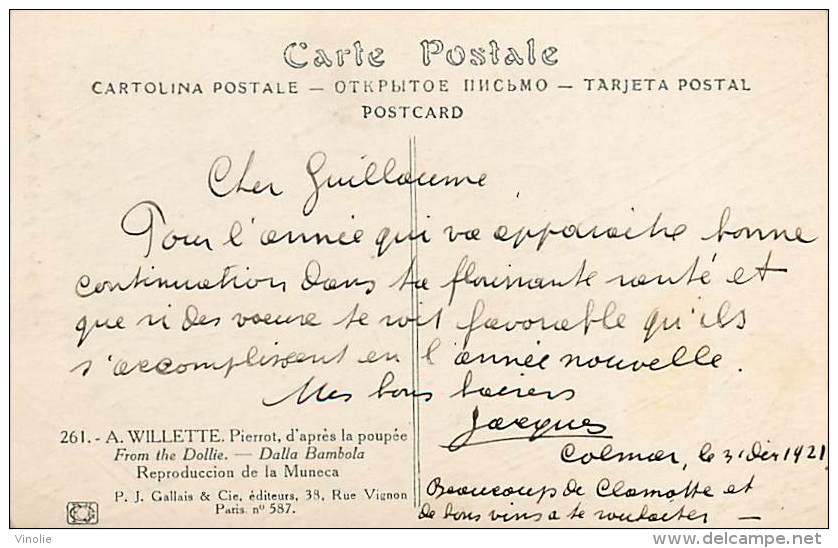 Carte Postale
CARTOLINA POSTALE — ОТКРЫТОЕ ПИСЬМО — TARJETA POSTAL
POSTCARD
Cher Guillaume
Pour l'année qui va apparaitre bonne
continuation dans ta florissante santé et
que si des voeux te soit favorable qu'ils
s'accomplissent en l'année nouvelle.
Mes bons baisers
Jacques
Colmar, le 31 déc 1921
Beaucoup de et
de bons vins a te souhaiter —
261. - A. WILLETTE. Pierrot, d'après la poupée
From the Dollie. — Dalla Bambola
Reproduccion de la Muneca
P. J. Gallais & Cie, éditeurs, 38, Rue Vignon
Paris. nº 587.
Vinolie
delcampe.net